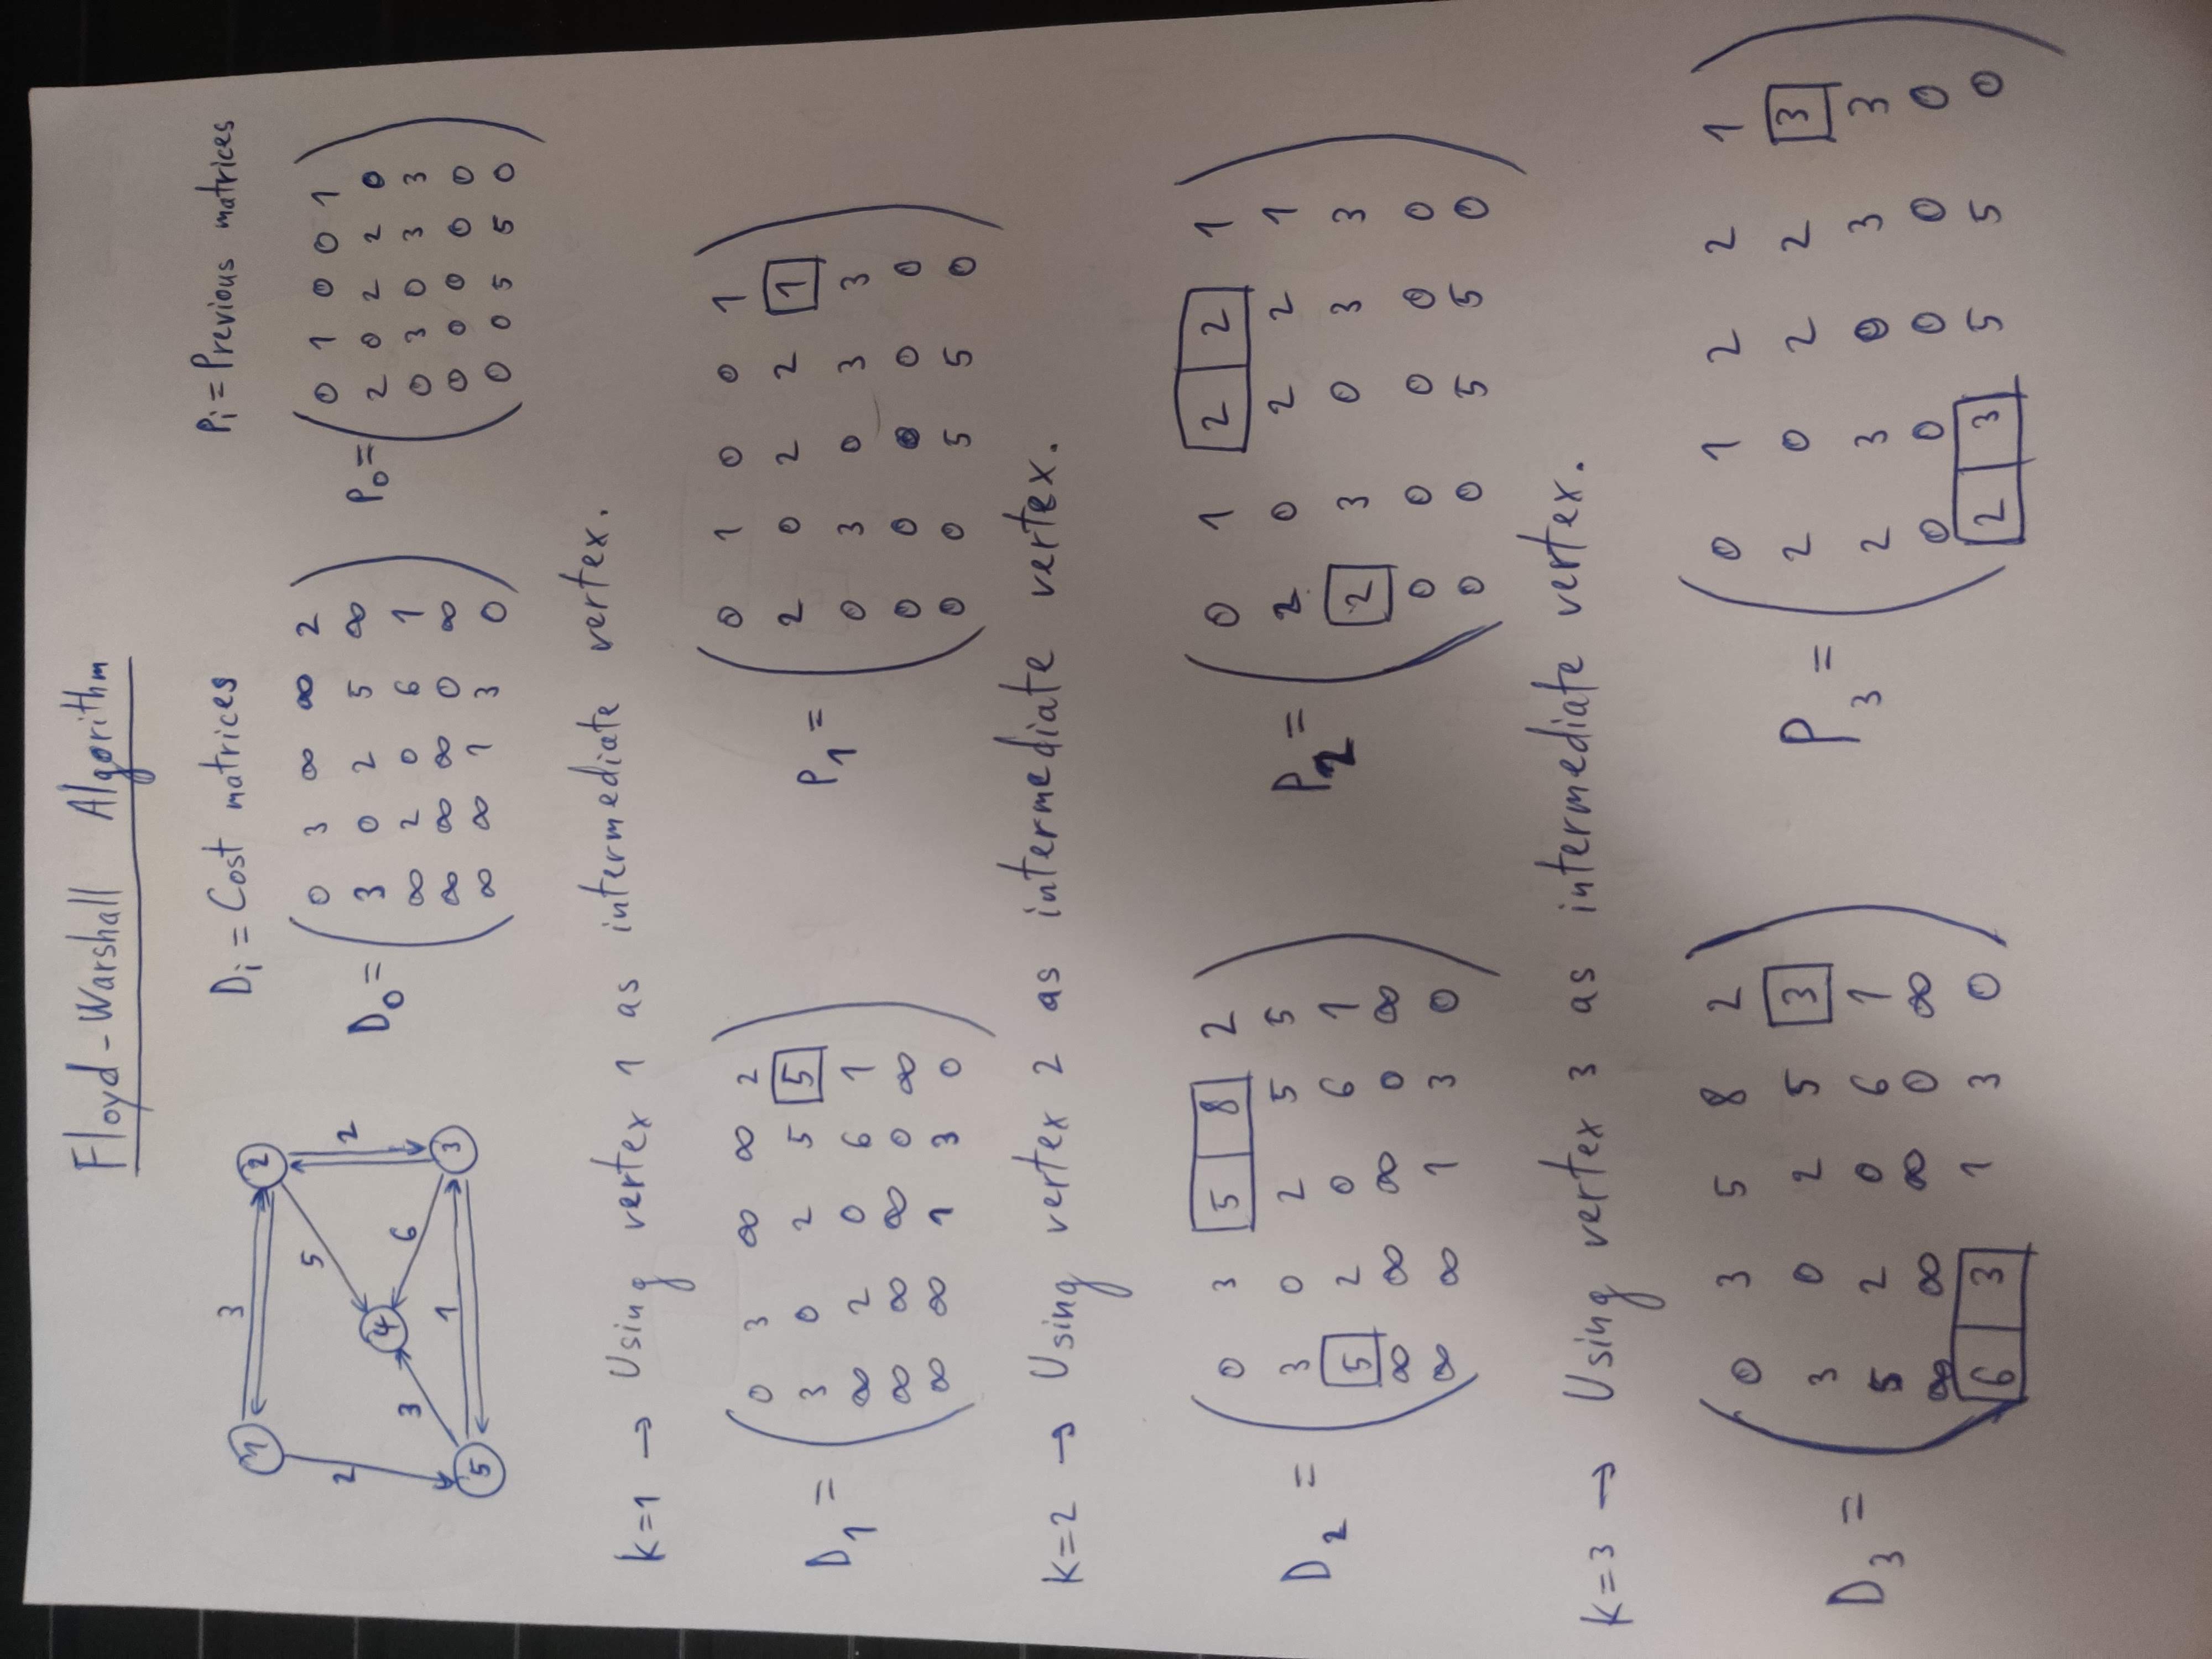 Floyd-Warshall Algorithm
Di = Cost matrices
Pi = Previous matrices
1 3 2
2 5 2
4
3 6
5 1 3
D0 =
0 3 ∞ ∞ 2
3 0 2 5 ∞
∞ 2 0 6 1
∞ ∞ ∞ 0 ∞
∞ ∞ 1 3 0
P0 =
0 1 0 0 1
2 0 2 2 0
0 3 0 3 3
0 0 0 0 0
0 0 5 5 0
k=1 → Using vertex 1 as intermediate vertex.
D1 =
0 3 ∞ ∞ 2
3 0 2 5 5
∞ 2 0 6 1
∞ ∞ ∞ 0 ∞
∞ ∞ 1 3 0
P1 =
0 1 0 0 1
2 0 2 2 1
0 3 0 3 3
0 0 0 0 0
0 0 5 5 0
k=2 → Using vertex 2 as intermediate vertex.
D2 =
0 3 5 8 2
3 0 2 5 5
5 2 0 6 1
∞ ∞ ∞ 0 ∞
∞ ∞ 1 3 0
P2 =
0 1 2 2 1
2 0 2 2 1
2 3 0 3 3
0 0 0 0 0
0 0 5 5 0
k=3 → Using vertex 3 as intermediate vertex.
D3 =
0 3 5 8 2
3 0 2 5 3
5 2 0 6 1
∞ ∞ ∞ 0 ∞
6 3 1 3 0
P3 =
0 1 2 2 1
2 0 2 2 3
2 3 0 3 3
0 0 0 0 0
2 3 5 5 0